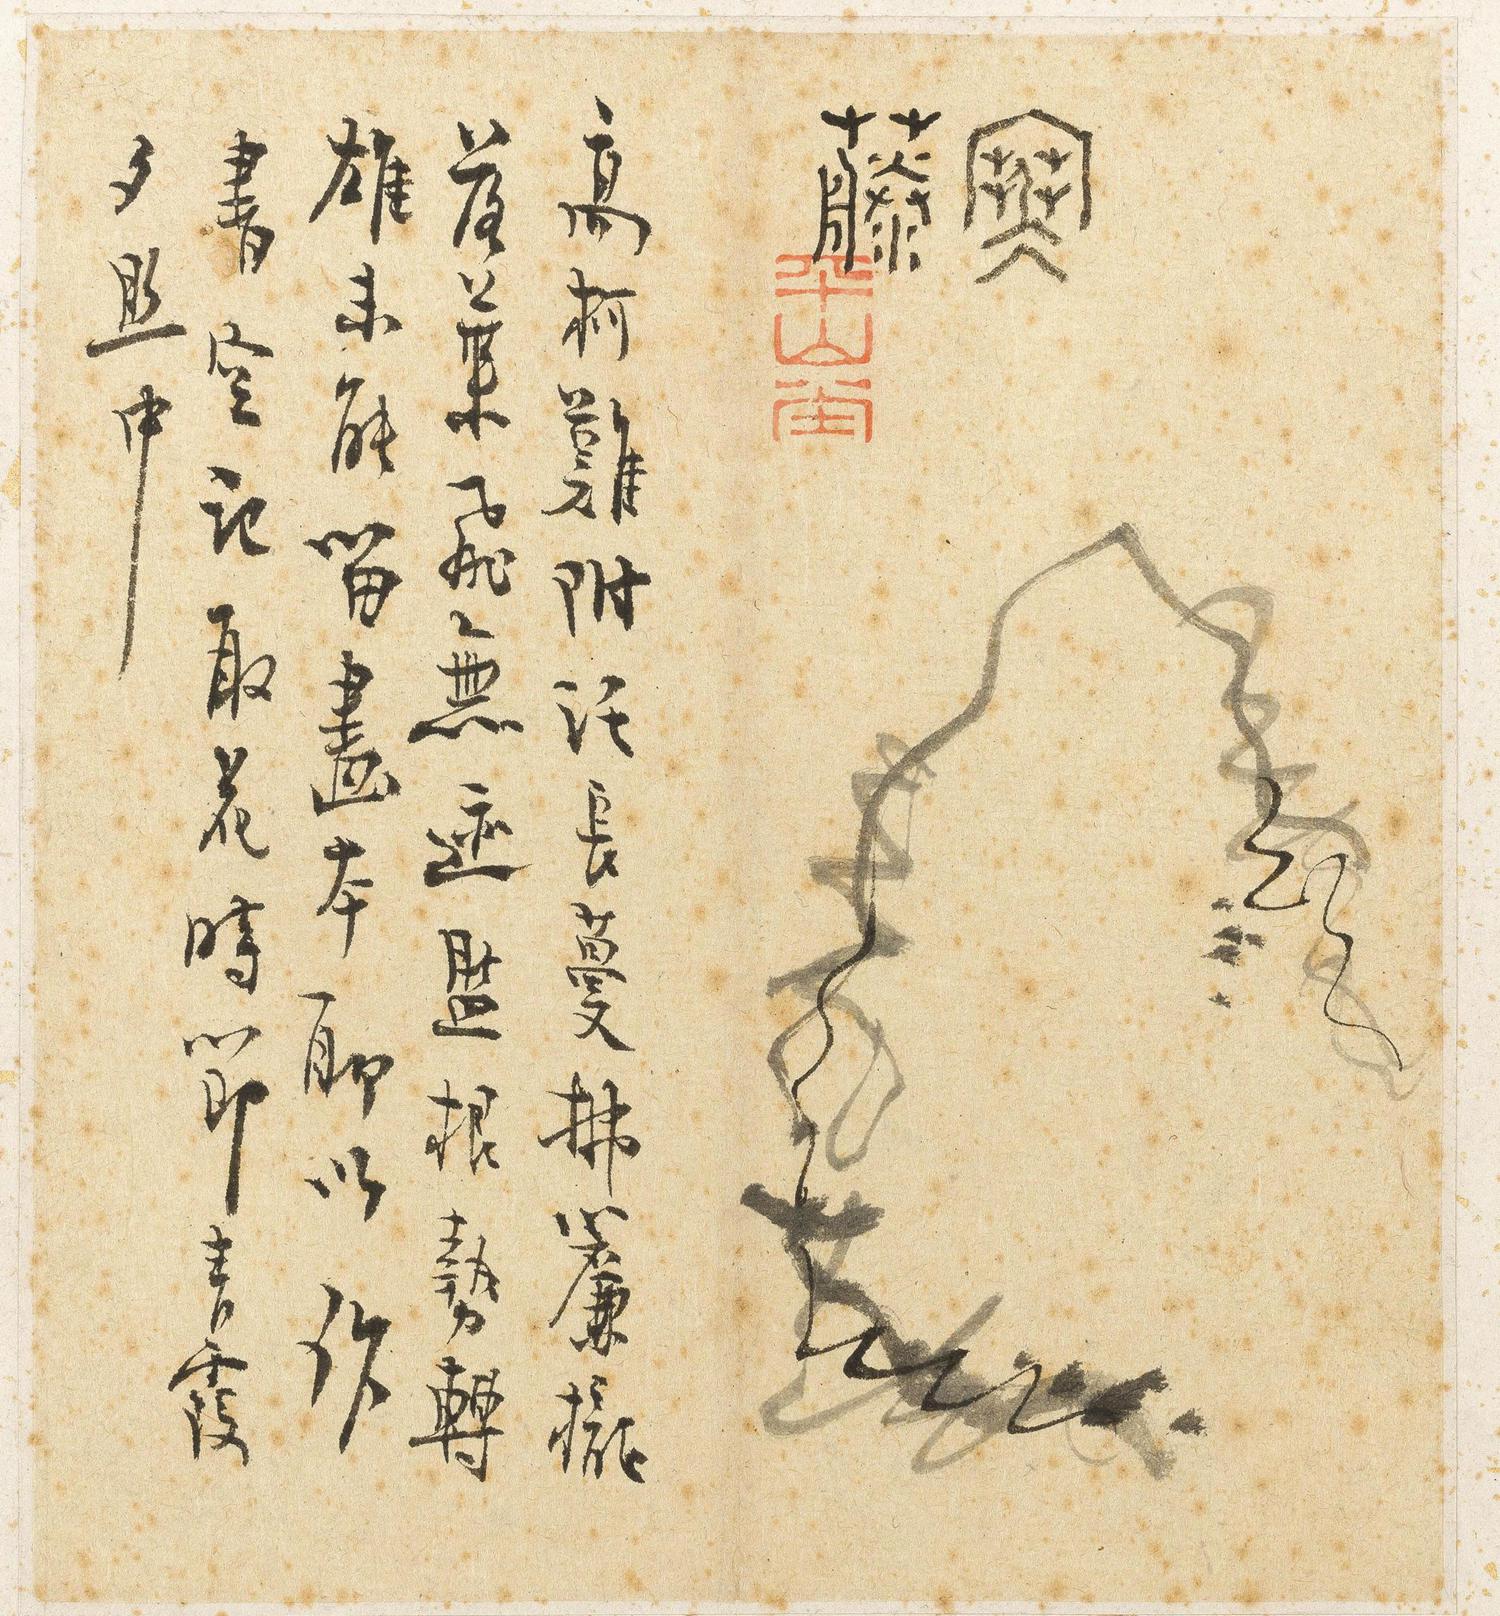 寒藤
平山堂
高柯難附託長蔓拂簾櫳
落葉飛無迹盤根勢轉
雄未能留畫本聊以作
書空記取花時節青霞
夕照中